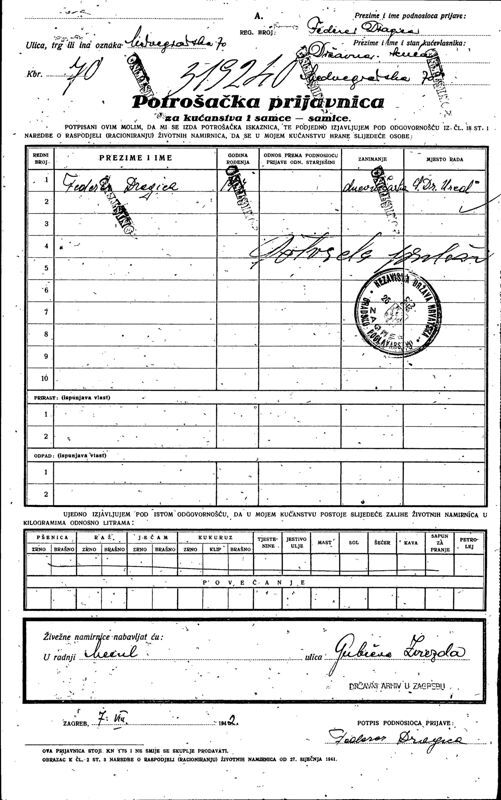 A.
REG. BROJ:
Prezime i ime podnosioca prijave:
Ulica, trg ili ina oznaka Medvegradska 70
Prezime i ime i stan kućevlasnika:
Državna kuća
Kbr. 70
319240
Medvegradska 70
Potrošačka prijavnica
za kućanstva i samce — samice.
POTPISANI OVIM MOLIM, DA MI SE IZDA POTROŠAČKA ISKAZNICA, TE PODJEDNO IZJAVLJUJEM POD ODGOVORNOŠĆU IZ ČL. 18 ST. 1
NAREDBE O RASPODJELI (RACIONIRANJU) ŽIVOTNIH NAMIRNICA, DA SE U MOJEM KUĆANSTVU HRANE SLIJEDEĆE OSOBE:
REDNI BROJ.
PREZIME I IME
GODINA ROĐENJA
ODNOS PREMA PODNOSIOCU PRIJAVE ODN. STARJEŠINI
ZANIMANJE
MJESTO RADA
1 Dragica
2
3
4
5
6
7
8
9
10
NEZAVISNA DRŽAVA HRVATSKA
GRADSKO POGLAVARSTVO
ZAGREB
PRIRAST: (ispunjava vlast)
1
2
OTPAD: (ispunjava vlast)
1
2
UJEDNO IZJAVLJUJEM POD ISTOM ODGOVORNOŠĆU, DA U MOJEM KUĆANSTVU POSTOJE SLIJEDEĆE ZALIHE ŽIVOTNIH NAMIRNICA U
KILOGRAMIMA ODNOSNO LITRAMA:
PŠENICA RAŽ JEČAM KUKURUZ TJESTENINE JESTIVO ULJE MAST SOL ŠEĆER KAVA SAPUN ZA PRANJE PETROLEJ
ZRNO BRAŠNO ZRNO BRAŠNO ZRNO BRAŠNO ZRNO KLIP BRAŠNO
POVEĆANJE
Živežne namirnice nabavljat ću:
U radnji ulica: Gubčeva Zvezda
DRŽAVNI ARHIV U ZAGREBU
ZAGREB, 7. VII 1942.
POTPIS PODNOSIOCA PRIJAVE:
Dragica
OVA PRIJAVNICA STOJI KN 1'75 I NE SMIJE SE SKUPLJE PRODAVATI.
OBRAZAC K ČL. 2 ST. 3 NAREDBE O RASPODJELI (RACIONIRANJU) ŽIVOTNIH NAMIRNICA OD 27. SIJEČNJA 1941.